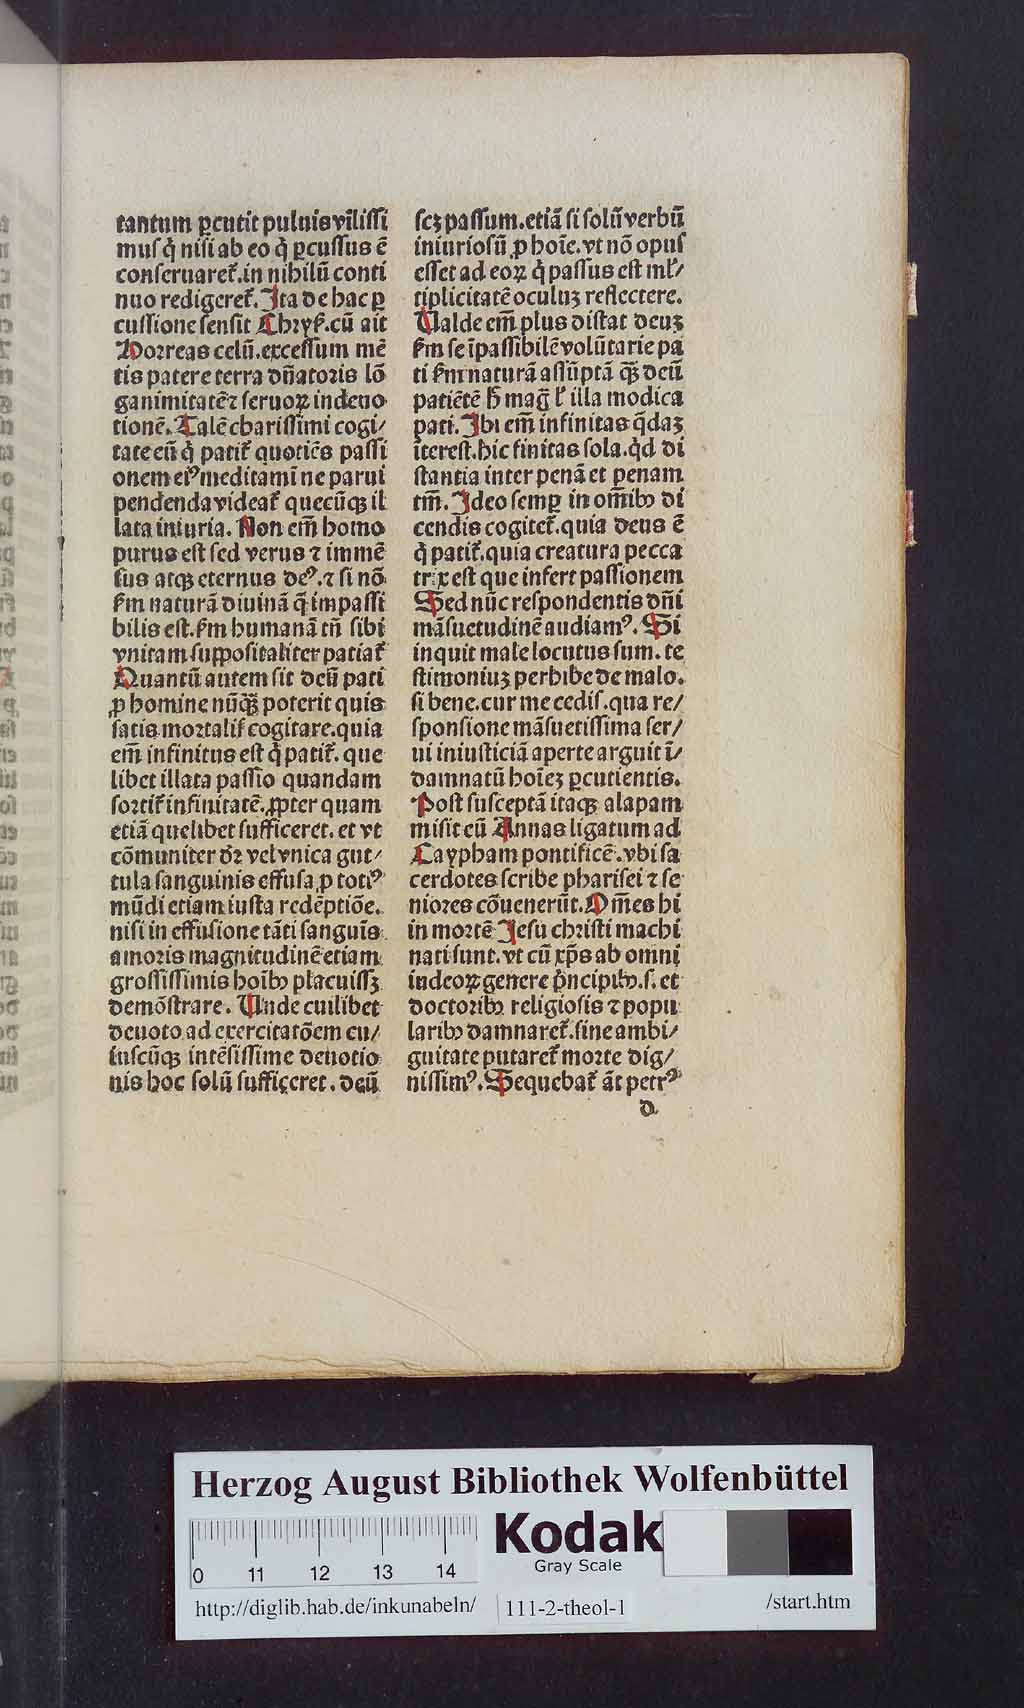 tantum ꝑcutit puluis vilissi
mus q̇ nisi ab eo q̇ ꝑcussus ē
conseruaret̃. in nihilū conti
nuo redigeret̃. Ita de hac ꝑ
cussione sensit Chrys̃. cū ait
Horreas celū. excessum mē
tis patere terra dn̄atoris lō
ganimitatē ⁊ seruoꝝ indeuo
tionē. Talē charissimi cogi⸗
tate eū q̇ patit̃ quotiēs passi
onem eiꝰ meditamī ne parui
pendenda videat̃ quecūqꝫ il
lata iniuria. Non em̄ homo
purus est sed verus ⁊ immē
sus atqꝫ eternus deꝰ. ⁊ si nō
ẜm naturā diuinā q̄ impassi
bilis est. ẜm humanā tn̄ sibi
vnitam suppositaliter patiat̃
Quantū autem sit deū pati
ꝓ homine nūqꝫ̄ poterit quis
satis mortalis̃ cogitare. quia
em̄ infinitus est q̇ patit̃. que
libet illata passio quandam
sortit̃ infinitatē. ꝓpter quam
etiā quelibet sufficeret. et vt
cōmuniter dr̃ vel vnica gut⸗
tula sanguinis effusa ꝓ totiꝰ
mūdi etiam iusta redēptiōe.
nisi in effusione tāti sanguīs
amoris magnitudinē etiam
grossissimis hoībꝰ placuissꝫ
demōstrare. Unde cuilibet
deuoto ad exercitatōem cu⸗
iuscūqꝫ intēsissime deuotio
nis hoc solū sufficeret. deū
scꝫ passum. etiā si solū verbū
iniuriosū ꝓ hoīe. vt nō opus
esset ad eoꝝ q̇ passus est ml̃⸗
tiplicitatē oculuꝫ reflectere.
Valde em̄ plus distat deuꝫ
ẜm se īpassibilē volūtarie pa
ti ẜm naturā assūptā qꝫ̄ deū
patiētē h̄ maḡ l̃ illa modica
pati. Ibi em̄ infinitas q̄daꝫ
īterest. hic finitas sola. q̇d di
stantia inter penā et penam
tm̄. Ideo semꝑ in om̄ibꝰ di
cendis cogitet̃. quia deus ē
q̇ patit̃. quia creatura pecca
trix est que infert passionem
Sed nūc respondentis dn̄i
māsuetudinē audiamꝰ. Si
inquit male locutus sum. te
stimoniuꝫ perhibe de malo.
si bene. cur me cedis. qua re⸗
sponsione māsuetissima ser⸗
ui iniusticiā aperte arguit ī⸗
damnatū hoīeꝫ ꝑcutientis.
Post susceptā itaqꝫ alapam
misit eū Annas ligatum ad
Caypham pontificē. vbi sa
cerdotes scribe pharisei ⁊ se
niores cōuenerūt. Om̄es hi
in mortē Jesu christi machi
nati sunt. vt cū xp̄s ab omni
iudeoꝝ genere p̓ncipibꝰ. s. et
doctoribꝰ religiosis ⁊ popu
laribꝰ damnaret̃. sine ambi⸗
guitate putaret̃ morte dig⸗
nissimꝰ. Sequebat̃ āt petrꝰ
d
Herzog August Bibliothek Wolfenbüttel
0 11 12 13 14
Kodak
Gray Scale
http://diglib.hab.de/inkunabeln/ 111-2-theol-1 /start.htm